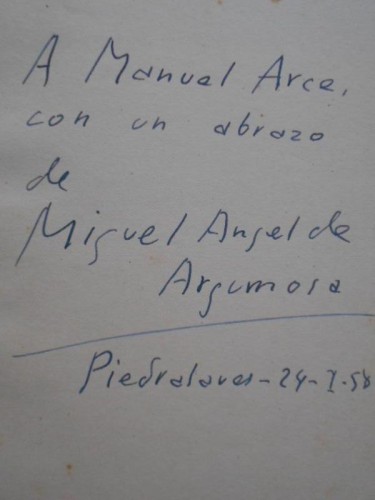 A Manuel Arce,
con un abrazo
de
Miguel Angel de
Argumosa
Piedralaves - 24 - I - 58